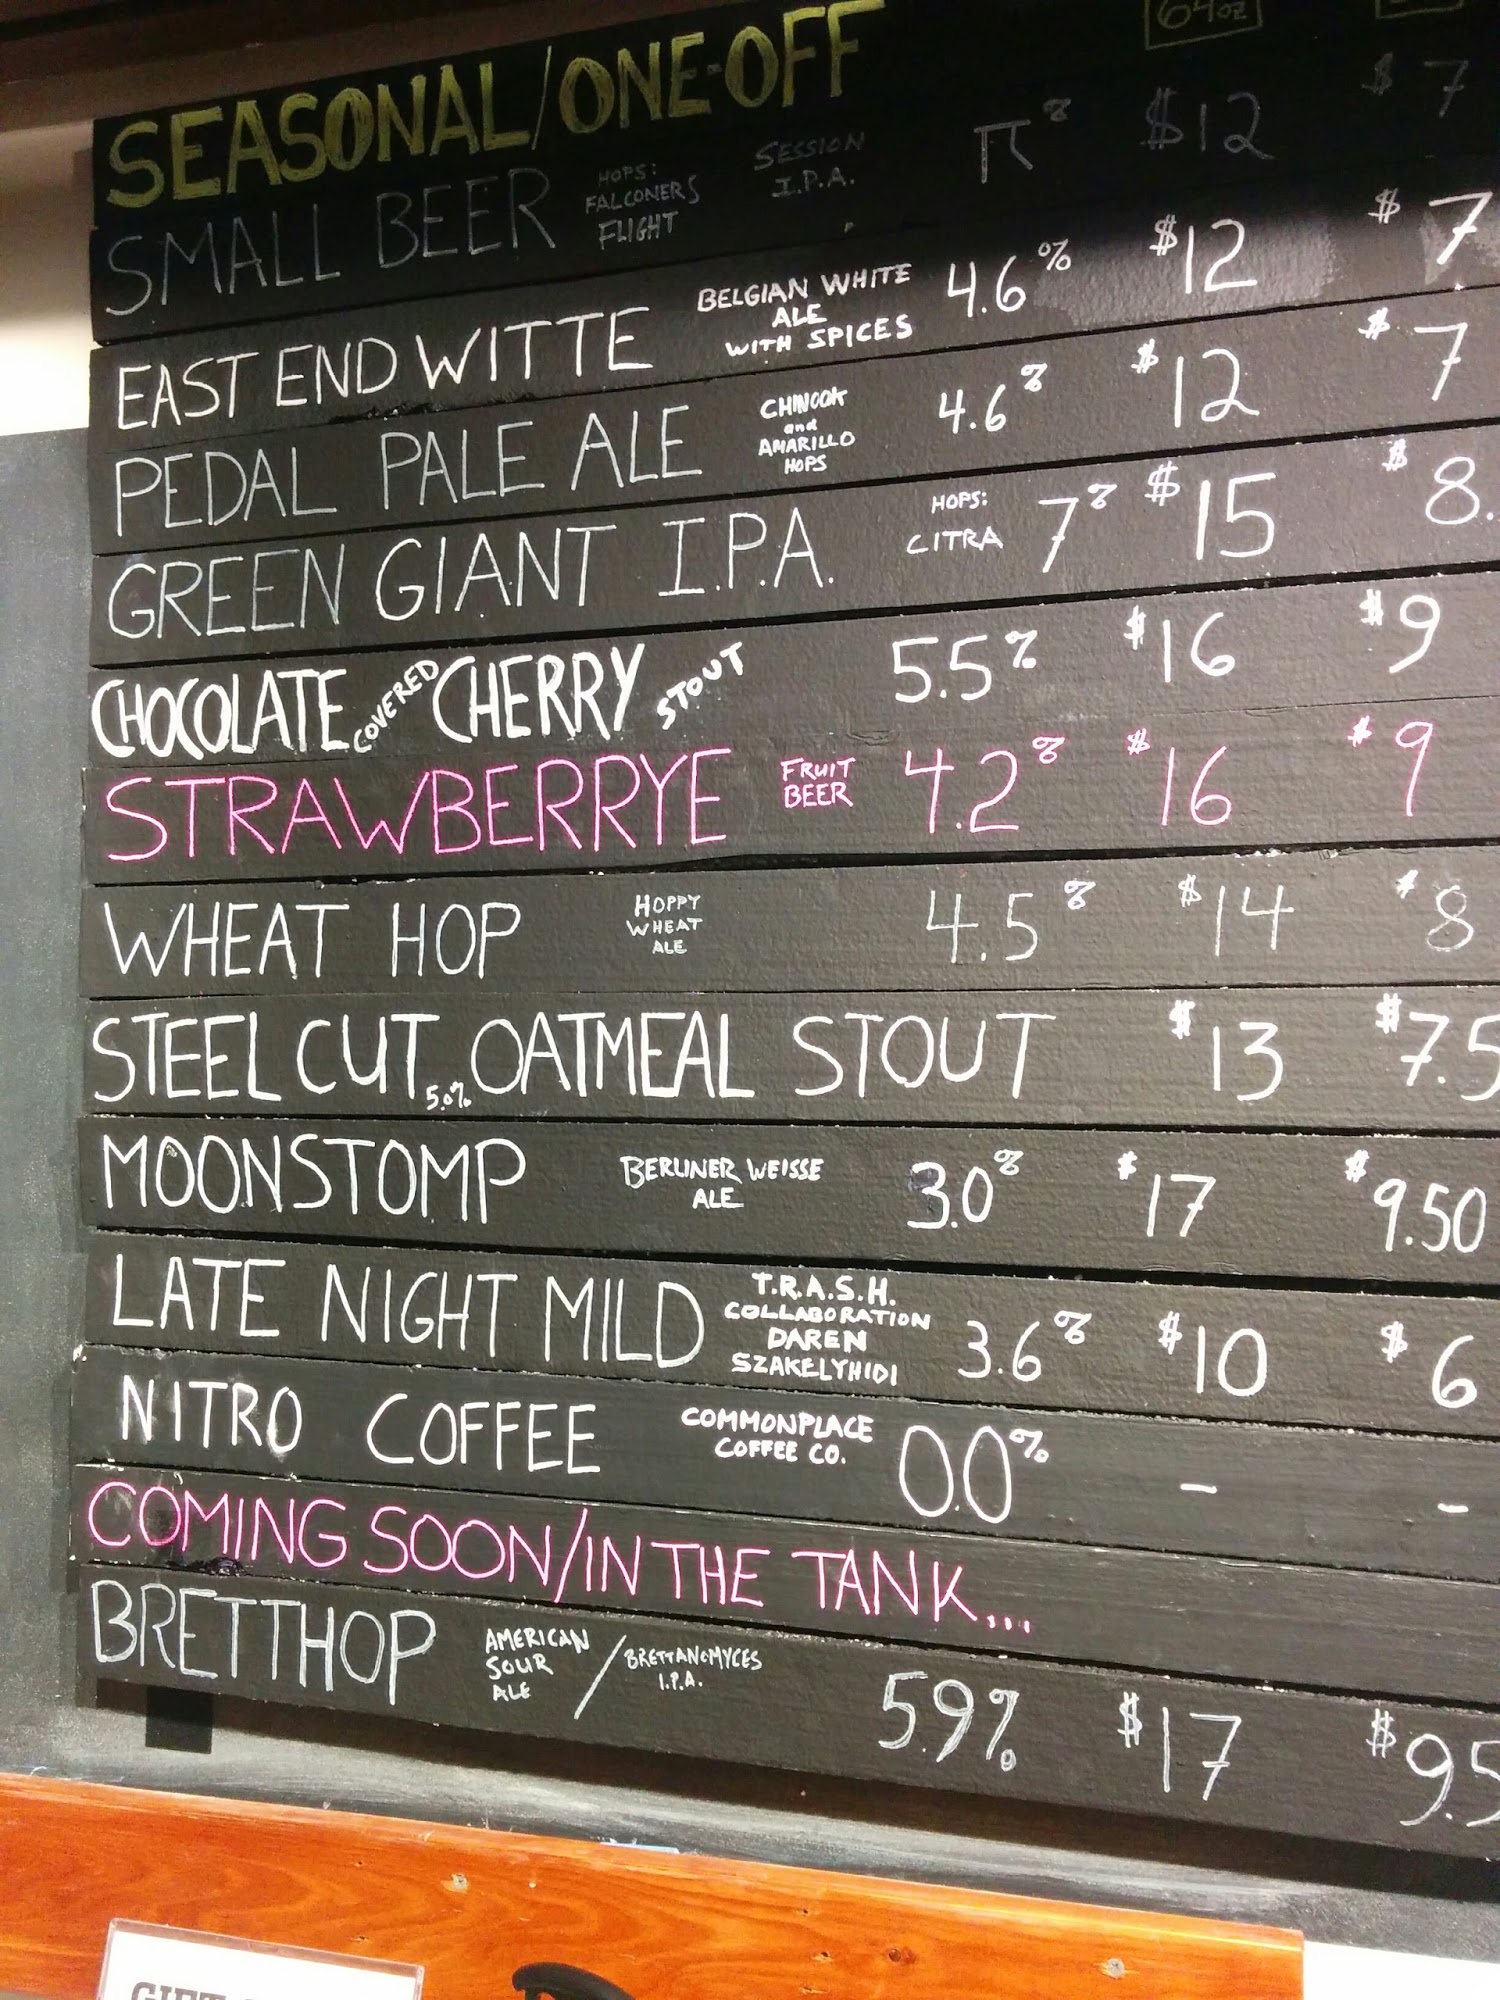 64oz
SEASONAL/ONE-OFF
SMALL BEER HOPS: FALCONERS FLIGHT SESSION I.P.A. π% $12 $7
EAST END WITTE BELGIAN WHITE ALE WITH SPICES 4.6% $12 $7
PEDAL PALE ALE CHINOOK and AMARILLO HOPS 4.6% $12 $7
GREEN GIANT I.P.A. HOPS: CITRA 7% $15 $8.
CHOCOLATE COVERED CHERRY STOUT 5.5% $16 $9
STRAWBERRYE FRUIT BEER 4.2% $16 $9
WHEAT HOP HOPPY WHEAT ALE 4.5% $14 $8
STEEL CUT 5.0% OATMEAL STOUT $13 $7.5
MOONSTOMP BERLINER WEISSE ALE 3.0% $17 $9.50
LATE NIGHT MILD T.R.A.S.H. COLLABORATION DAREN SZAKELYHIDI 3.6% $10 $6
NITRO COFFEE COMMONPLACE COFFEE CO. 0.0% - -
COMING SOON/IN THE TANK...
BRETTHOP AMERICAN SOUR ALE / BRETTANOMYCES I.P.A. 5.9% $17 $9.5